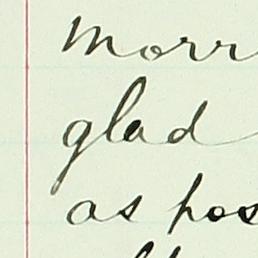 Morr
glad
as pos